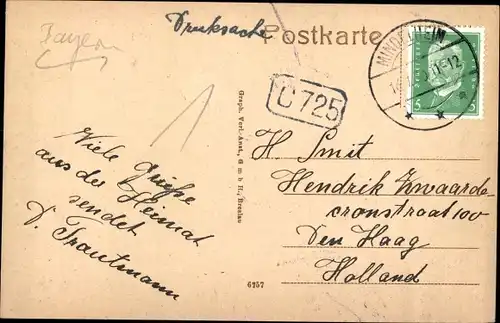 Drucksache
Postkarte
Bayern
MINDELHEIM
11-12
5 5
C 725
1
Viele Grüße
aus der Heimat
sendet
D. Trautmann
Graph. Verl.-Anst., G m b H., Breslau
6757
H. Smit
Hendrik Zwaarde-
cronstraat 100
Den Haag
Holland